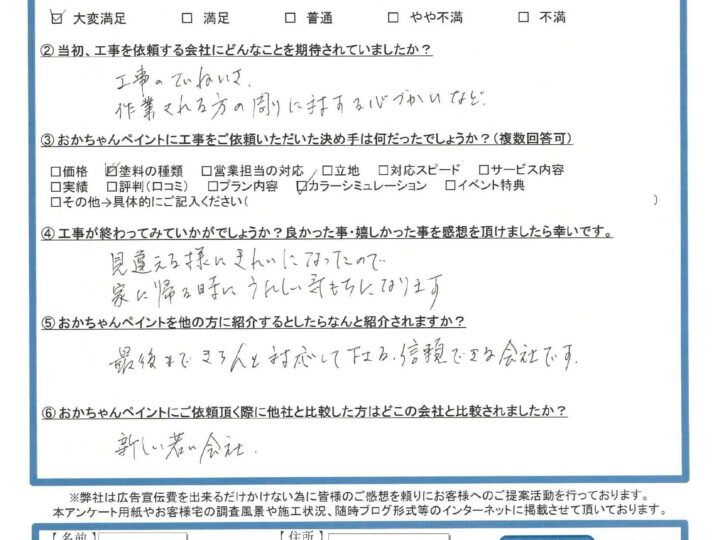 ☑ 大変満足 □ 満足 □ 普通 □ やや不満 □ 不満
②当初、工事を依頼する会社にどんなことを期待されていましたか？
工事のていねいさ、
作業される方の周りに対する心づかいなど、
③おかちゃんペイントに工事をご依頼いただいた決め手は何だったでしょうか？(複数回答可)
□価格 ☑塗料の種類 □営業担当の対応 □立地 □対応スピード □サービス内容
□実績 □評判(口コミ) □プラン内容 ☑カラーシミュレーション □イベント特典
□その他→具体的にご記入ください( )
④工事が終わってみていかがでしょうか？良かった事・嬉しかった事を感想を頂けましたら幸いです。
見違える様にきれいになったので
家に帰る時にうれしい気もちになります
⑤おかちゃんペイントを他の方に紹介するとしたらなんと紹介されますか？
最後まできちんと対応して下さる、信頼できる会社です。
⑥おかちゃんペイントにご依頼頂く際に他社と比較した方はどこの会社と比較されましたか？
新しい若い会社。
※弊社は広告宣伝費を出来るだけかけない為に皆様のご感想を頼りにお客様へのご提案活動を行っております。
本アンケート用紙やお客様宅の調査風景や施工状況、随時ブログ形式等のインターネットに掲載させて頂いております。
【名前】 【住所】